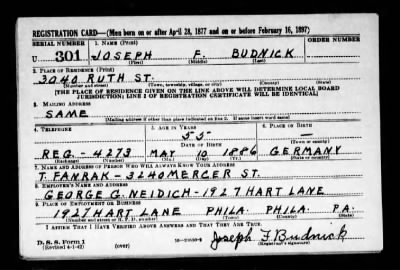 REGISTRATION CARD—(Men born on or after April 28, 1877 and on or before February 16, 1897)
SERIAL NUMBER 1. NAME (Print) ORDER NUMBER
U 301 JOSEPH F. BUDNICK
(First) (Middle) (Last)
2. PLACE OF RESIDENCE (Print)
3040 RUTH ST.
(Number and street) (Town, township, village, or city) (County) (State)
[THE PLACE OF RESIDENCE GIVEN ON THE LINE ABOVE WILL DETERMINE LOCAL BOARD
JURISDICTION; LINE 2 OF REGISTRATION CERTIFICATE WILL BE IDENTICAL]
3. MAILING ADDRESS
SAME
[Mailing address if other than place indicated on line 2. If same insert word same]
4. TELEPHONE 5. AGE IN YEARS 6. PLACE OF BIRTH
55 —
DATE OF BIRTH (Town or county)
REG.- 4273 MAY 10 1886 GERMANY
(Exchange) (Number) (Mo.) (Day) (Yr.) (State or country)
7. NAME AND ADDRESS OF PERSON WHO WILL ALWAYS KNOW YOUR ADDRESS
T. FANRAK - 3240 MERCER ST.
8. EMPLOYER'S NAME AND ADDRESS
GEORGE G. NEIDICH - 1927 HART LANE
9. PLACE OF EMPLOYMENT OR BUSINESS
1927 HART LANE PHILA. PHILA. PA.
(Number and street or R. F. D. number) (Town) (County) (State)
I AFFIRM THAT I HAVE VERIFIED ABOVE ANSWERS AND THAT THEY ARE TRUE.
D. S. S. Form 1
(Revised 4-1-42) (over) Joseph F Budnick
(Registrant's signature)